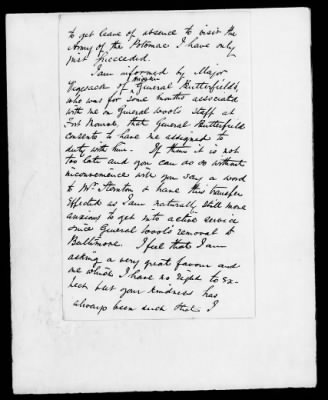 to get leave of absence to visit the
Army of the Potomac I have only
just succeeded.
I am informed by Major
Vegesack of General Butterfields
who was for some months associated
with me on General Wools staff at
Fort Monroe, that General Butterfield
consents to have me assigned to
duty with him. If then it is not
too late and you can do so without
inconvenience will you say a word
to Mr. Stanton & have this transfer
effected as I am naturally still more
anxious to get into active service
since General Wools removal to
Baltimore. I feel that I am
asking a very great favour and
one which I have no right to ex-
pect but your kindness has
always been such that I